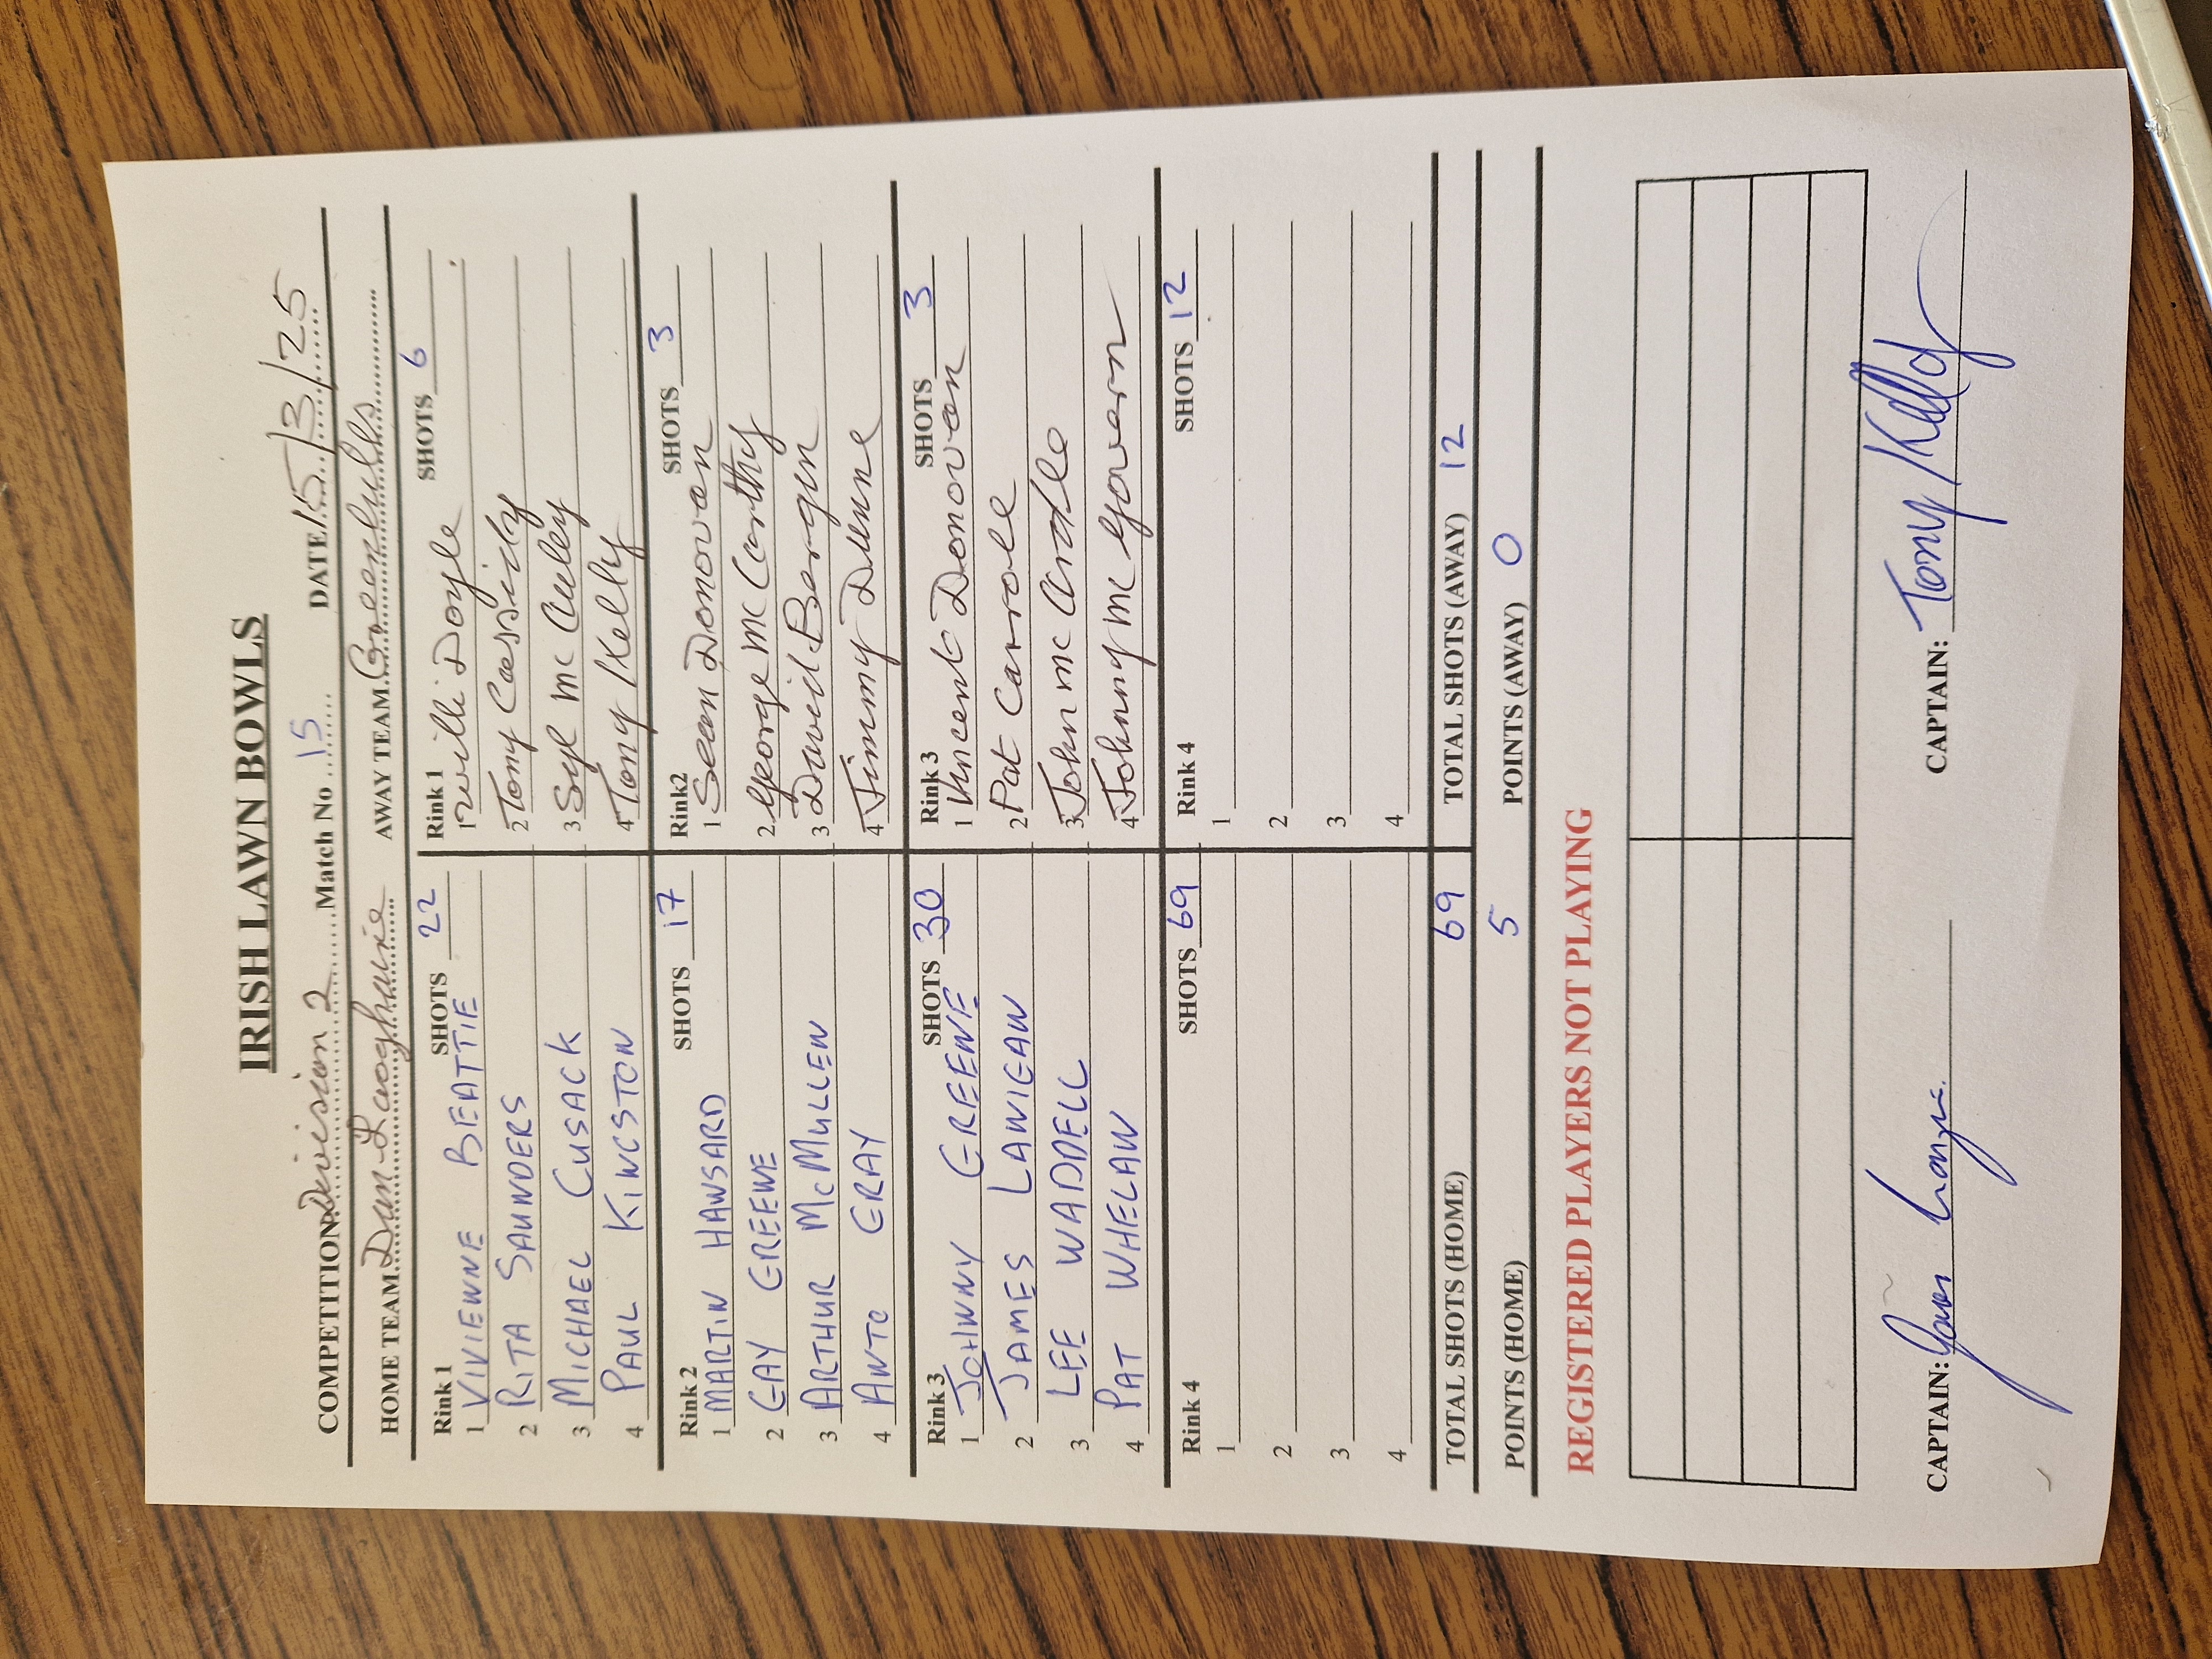 IRISH LAWN BOWLS
COMPETITION Division 2 Match No 15 DATE 15/3/25
HOME TEAM Dun Laoghaire AWAY TEAM Greenhills
Rink 1 SHOTS 22
1 VIVIENNE BEATTIE
2 RITA SAUNDERS
3 MICHAEL CUSACK
4 PAUL KINGSTON
Rink 1 SHOTS 6
1 Willi Doyle
2 Tony Cassidy
3 Syl Mc Auley
4 Tony Kelly
Rink 2 SHOTS 17
1 MARTIN HANSARD
2 GAY GREENE
3 ARTHUR McMULLEN
4 ANTO GRAY
Rink2 SHOTS 3
1 Sean Donovan
2 George Mc Carthy
3 David Bergin
4 Jimmy Dunne
Rink 3 SHOTS 30
1 JOHNNY GREENE
2 JAMES LANIGAN
3 LEE WADDELL
4 PAT WHELAN
Rink 3 SHOTS 3
1 Vincent Donovan
2 Pat Carrole
3 John mc Ardle
4 Johnny mc Govern
Rink 4 SHOTS 69
1
2
3
4
Rink 4 SHOTS 12
1
2
3
4
TOTAL SHOTS (HOME) 69 TOTAL SHOTS (AWAY) 12
POINTS (HOME) 5 POINTS (AWAY) 0
REGISTERED PLAYERS NOT PLAYING
CAPTAIN: CAPTAIN: Tony Kelly